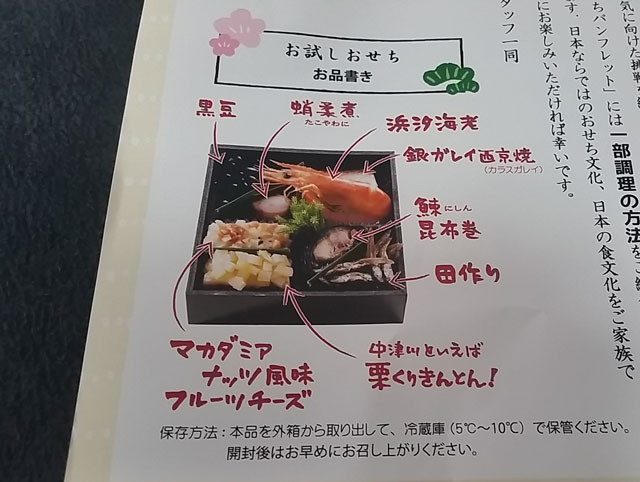 気に向けた挑
ちパンフレット」には一部調理の方法を
す。日本ならではのおせち文化、日本の食文化をご家族で
にお楽しみいただければ幸いです。
タッフ一同
お試しおせち
お品書き
黒豆
蛸柔煮
たこやわに
浜汐海老
銀ガレイ西京焼
(カラスガレイ)
鰊にしん
昆布巻
田作り
マカダミア
ナッツ風味
フルーツチーズ
中津川といえば
栗くりきんとん!
保存方法:本品を外箱から取り出して、冷蔵庫(5℃～10℃)で保管ください。
開封後はお早めにお召し上がりください。